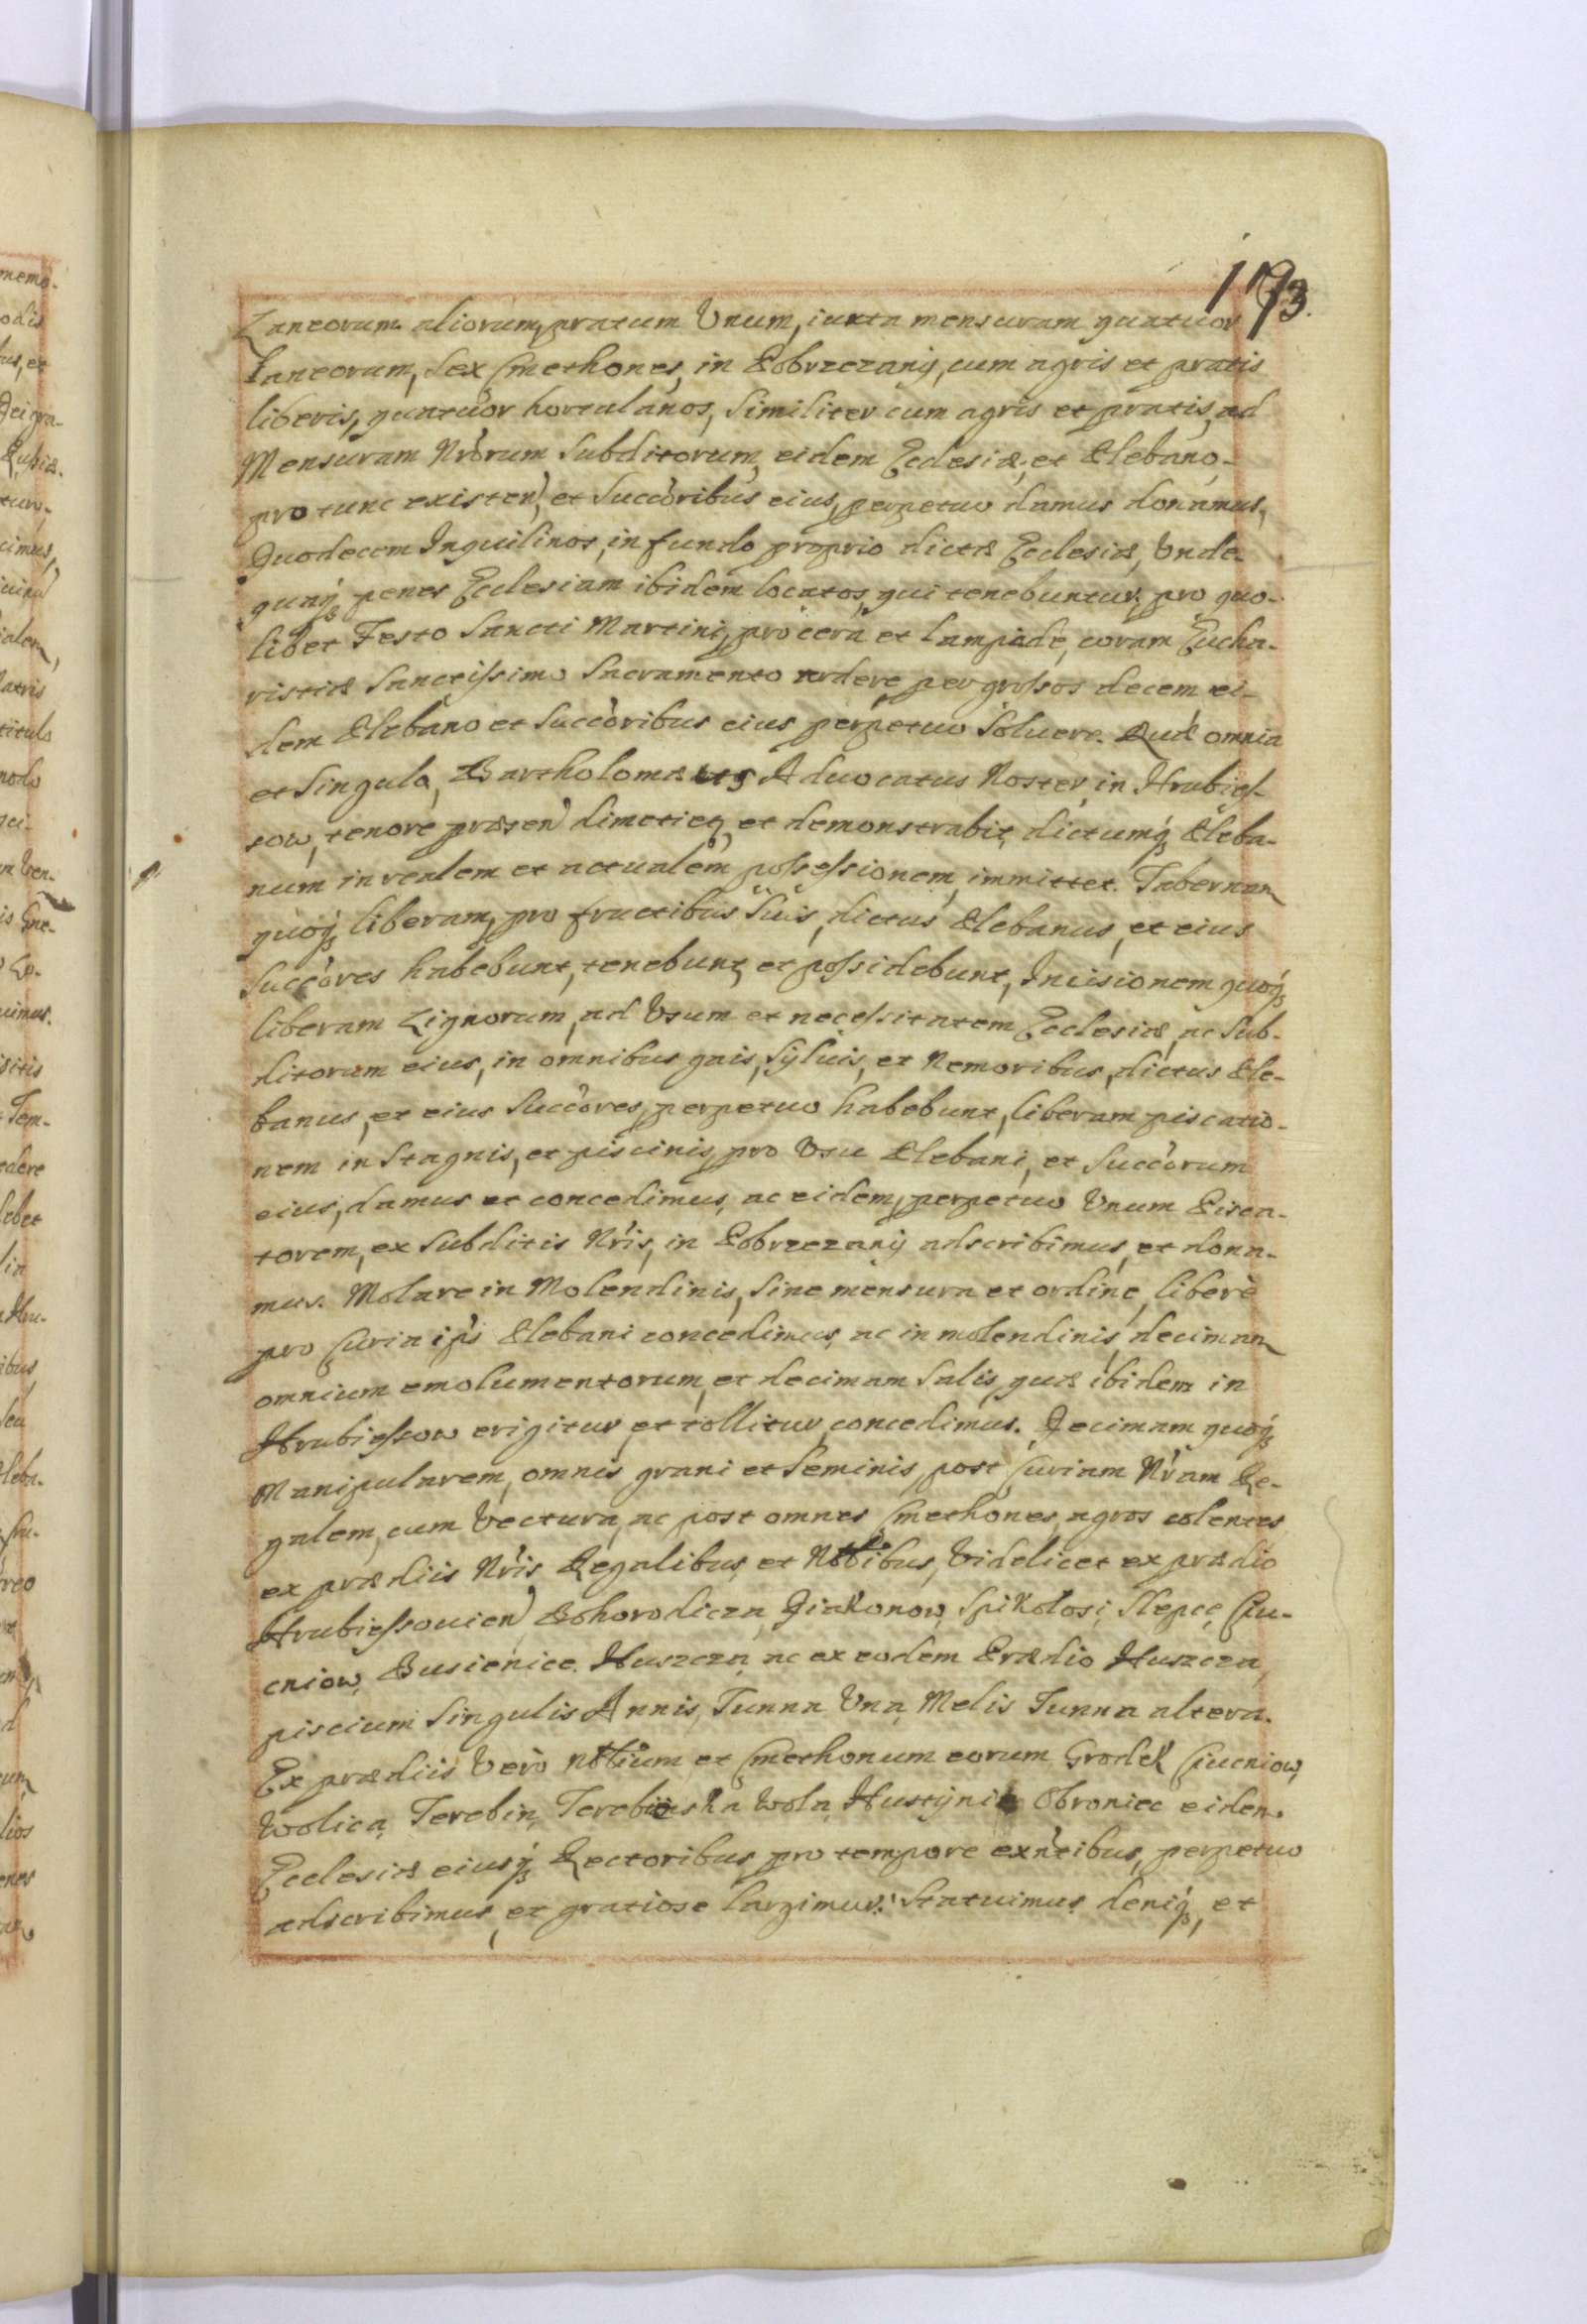 173.
Laneorum aliorum, pratum Unum, iuxta mensuram quatuor
Laneorum, Sex Cmethones, in Pobrzezany, cum agris et pratis
liberis, quatuor hortulanos, Similiter cum agris et pratis, ad
Mensuram Nrorum Subditorum, eidem Ecclesiæ, et Plebano
pro tunc existen, et Succoribus eius, perpetuo damus donamus,
Duodecem Inquilinos, in fundo proprio dictæ Ecclesiæ, Unde-
quaq penes Ecclesiam ibidem locatos, qui tenebuntur pro quo-
libet Festo Sancti Martini, pro cera et lampade, coram Eucha-
ristiæ Sanctissimo Sacramento ardere per grossos decem ei-
dem Plebano et Succoribus eius perpetuo Soluere. Quæ omnia
et Singula, Bartholomæus Aduocatus Noster, in Hrubies-
sow, tenore præsen dimetieq, et demonstrabit, dictumq Pleba-
num in realem et actualem possessionem, immittet. Tabernam
quoq liberam, pro fructibus Suis, dictus Plebanus, et eius
Succores habebunt, tenebunt, et possidebunt, Incisionem quoq
liberam Lignorum, ad Usum et necessitatem Ecclesiæ, ac Sub-
ditorum eius, in omnibus gais, Syluis, et Nemoribus, dictus Ple-
banus, et eius Succores, perpetuo habebunt, liberam piscatio-
nem in Stagnis, et piscinis, pro Usu Plebani, et Succorum
eius, damus et concedimus, ac eidem, perpetuo Unum Pisca-
torem, ex Subditis Nris, in Pobrzezany adscribimus, et dona-
mus. Molare in Molendinis, Sine mensura et ordine, liberè
pro Curia ips Plebani concedimus, ac in molendinis, decimam
omnium emolumentorum, et decimam Salis, quæ ibidem in
Hrubiessow erigitur, et tollitur, concedimus. Decimam quoq
Manipularem, omnis grani et Seminis, post Curiam Nram Re-
galem, cum Vectura, ac post omnes Cmethones, agros colentes
ex prædiis Nris Regalibus, et Nobibus, Videlicet ex prædio
Hrubiessouien, Bohorodicza, Diakonow, Spikolosi, Slepce, Czu-
cniow, Busienice, Huszcza, ac ex eodem Prædio Huszcza,
piscium Singulis Annis, Tunna Una, Melis Tunna altera.
Ex prædiis Vero nobium et Cmethonum eorum Grodek Czucniow,
Wolica, Terebin, Terebinska Wola, Hustynie Obroniec eidem
Ecclesiæ eiusq Rectoribus pro tempore exntibus, perpetuo
adscribimus, et gratiose largimur. Statuimus deniq, et